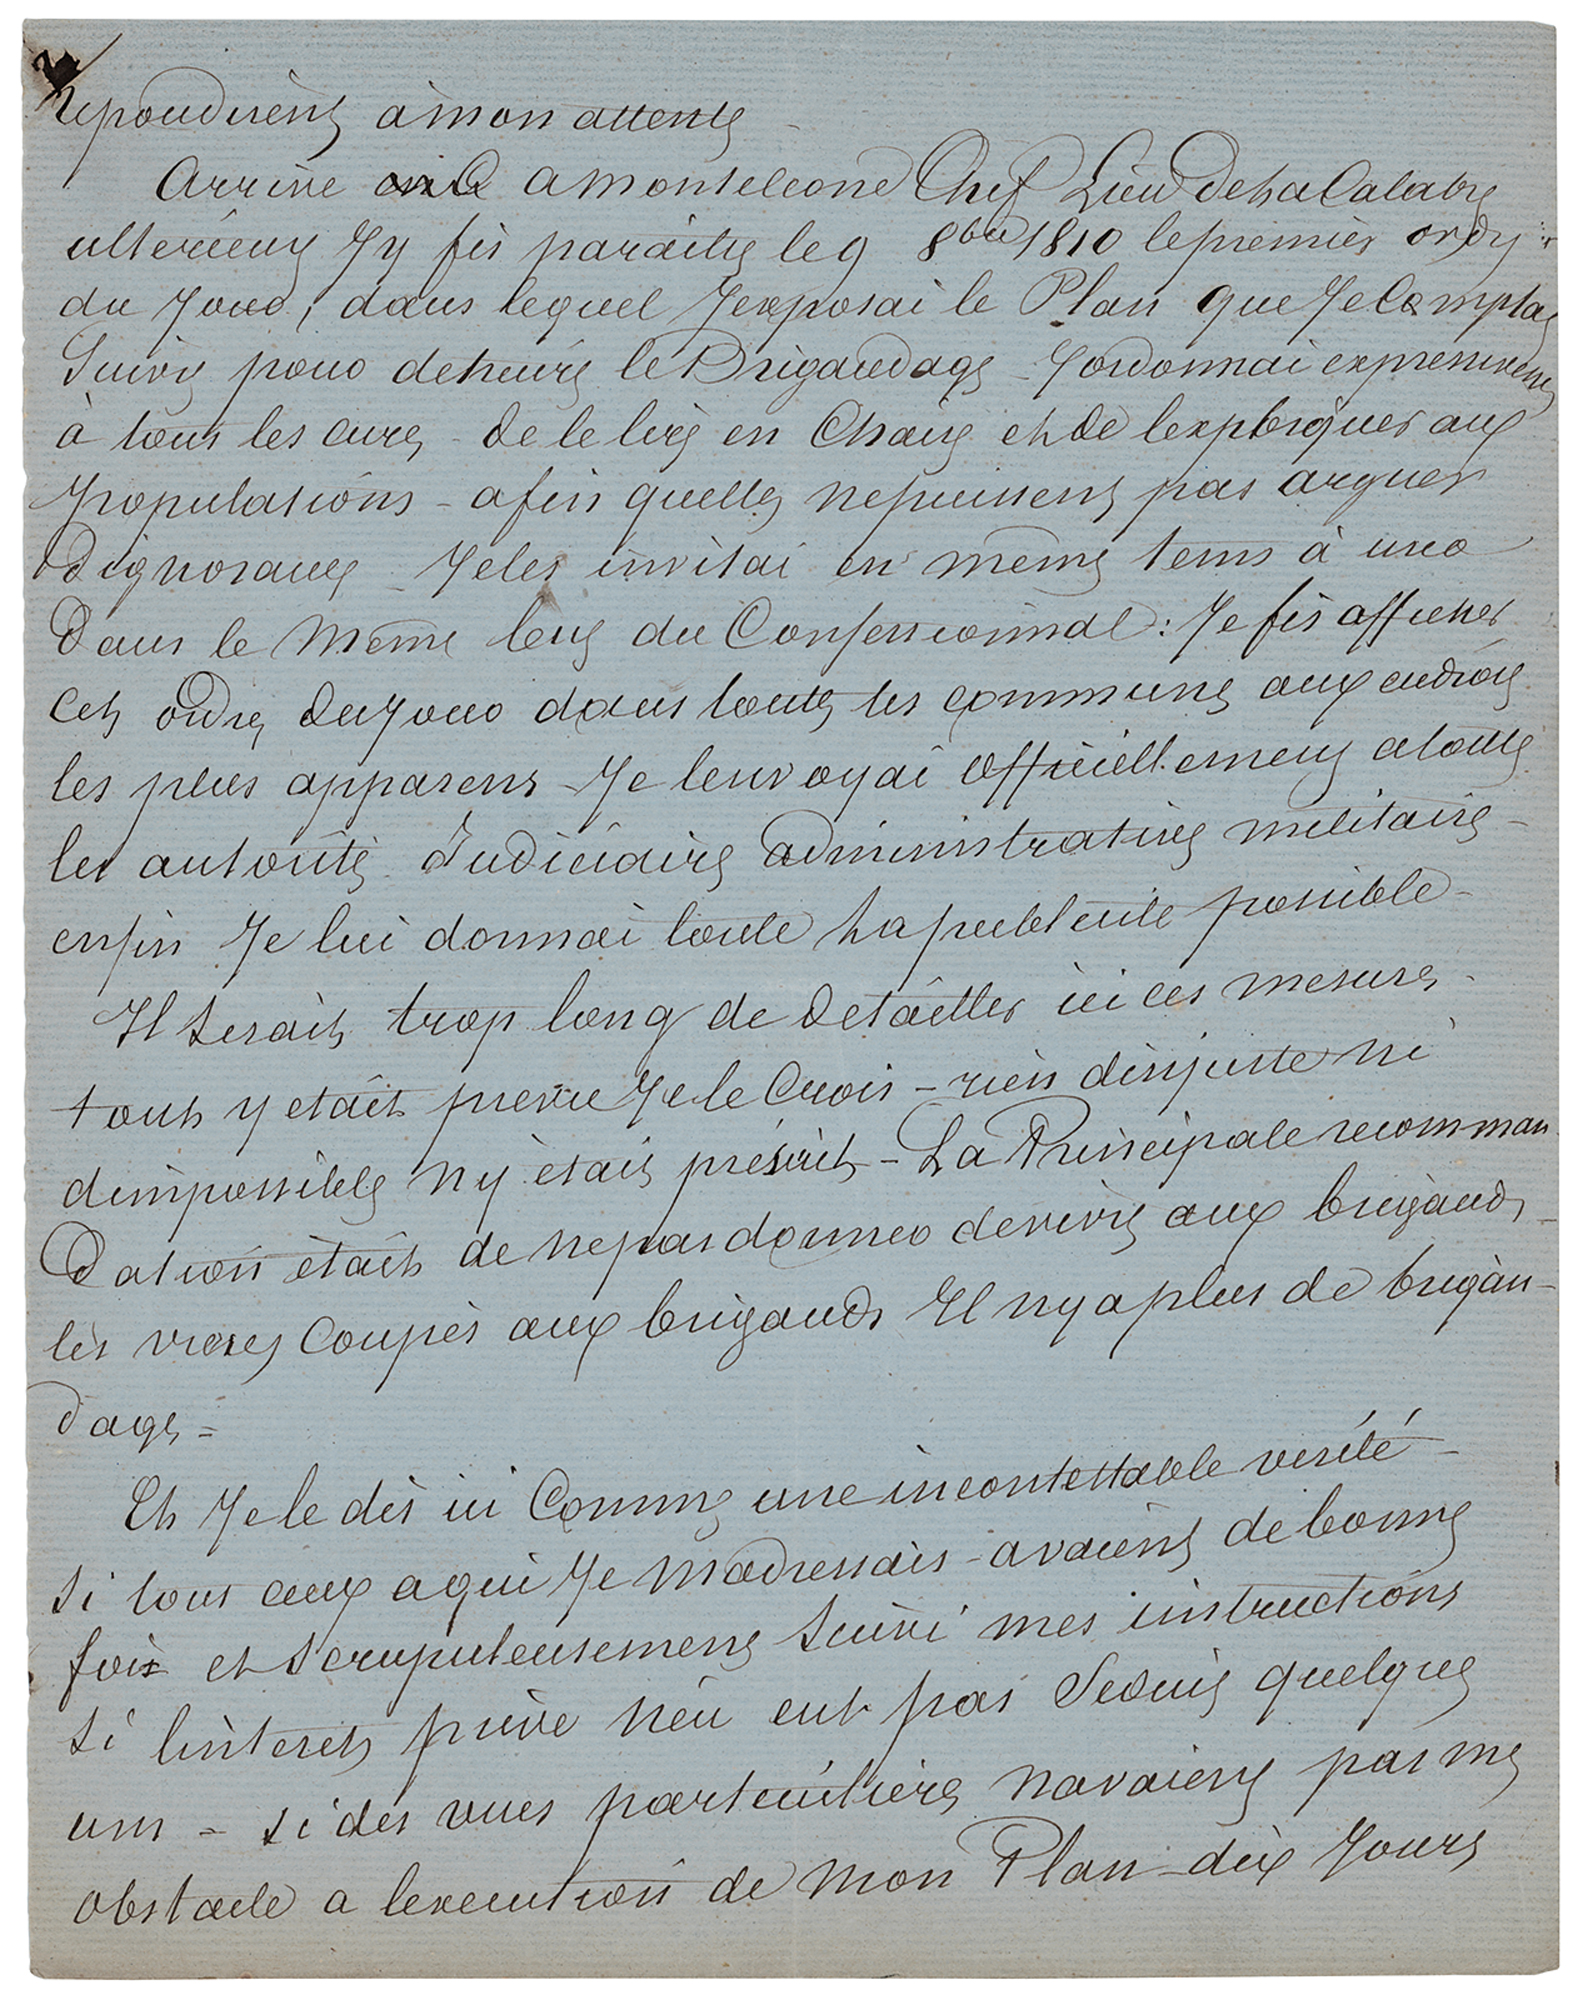 repondirent à mon attente
Arrivé a Monteleone Chef Lieu de la Calabre
ulterieure J'y fis paraitre le 9 8bre 1810 le premier ordre
du Jour, dans lequel J'exposai le Plan que Je Comptais
Suivre pour detruire le Brigandage - J'ordonnai expressement
à tous les curés - de le lire en Chaire et de lexpliquer aux
populations - afin quelles ne puissent pas arguer
dignorance - Je les invitai en même tems à
dans le Même sens du Confessionnal : Je fis afficher
cet ordre du Jour dans toutes les communes aux endroits
les plus apparens - Je lenvoyai officiellement a toutes
les autorités Judiciaires administratives militaires -
enfin Je lui donnai toute la publicité possible -
Il serait trop long de detailler ici ces mesures -
tout y etait prevu Je le Crois - rien dinjuste ni
dimpossible ny était préscrit - La Principale recomman
dation était de ne pas donner de vivres aux brigands -
les vivres Coupés aux brigands Il ny a plus de brigan-
dage =
Et Je le dis ici Comme une incontestable verité -
si tous ceux a qui Je Madressais - avaient de bonne
foi et scrupuleusement suivi mes instructions
si linteret privé nen eut pas Seduit quelques
uns - si des vues particulieres navaient pas mis
obstacle a lexecution de Mon Plan - dix Jours